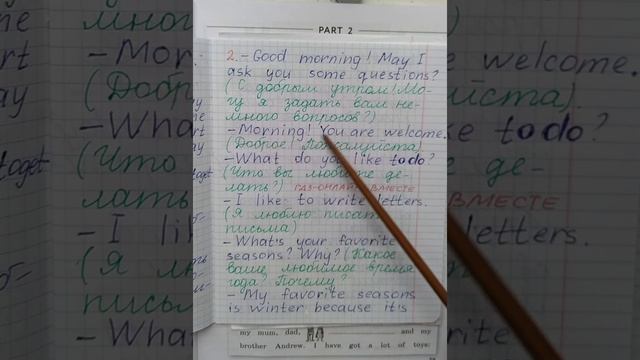 PART 2
2. – Good morning! May I
ask you some questions?
(С добрым утром! Мо-
гу я задать вам не-
много вопросов?)
– Morning! You are welcome.
(Доброе! Пожалуйста)
– What do you like to do?
(Что вы любите де-
лать?) ГДЗ-ОНЛАЙН ВМЕСТЕ
– I like to write letters.
(Я люблю писать
письма)
– What's your favorite
seasons? Why? (Какое
ваше любимое время
года? Почему?
– My favorite seasons
is winter because it is
my mum, dad, and my
brother Andrew. I have got a lot of toys: